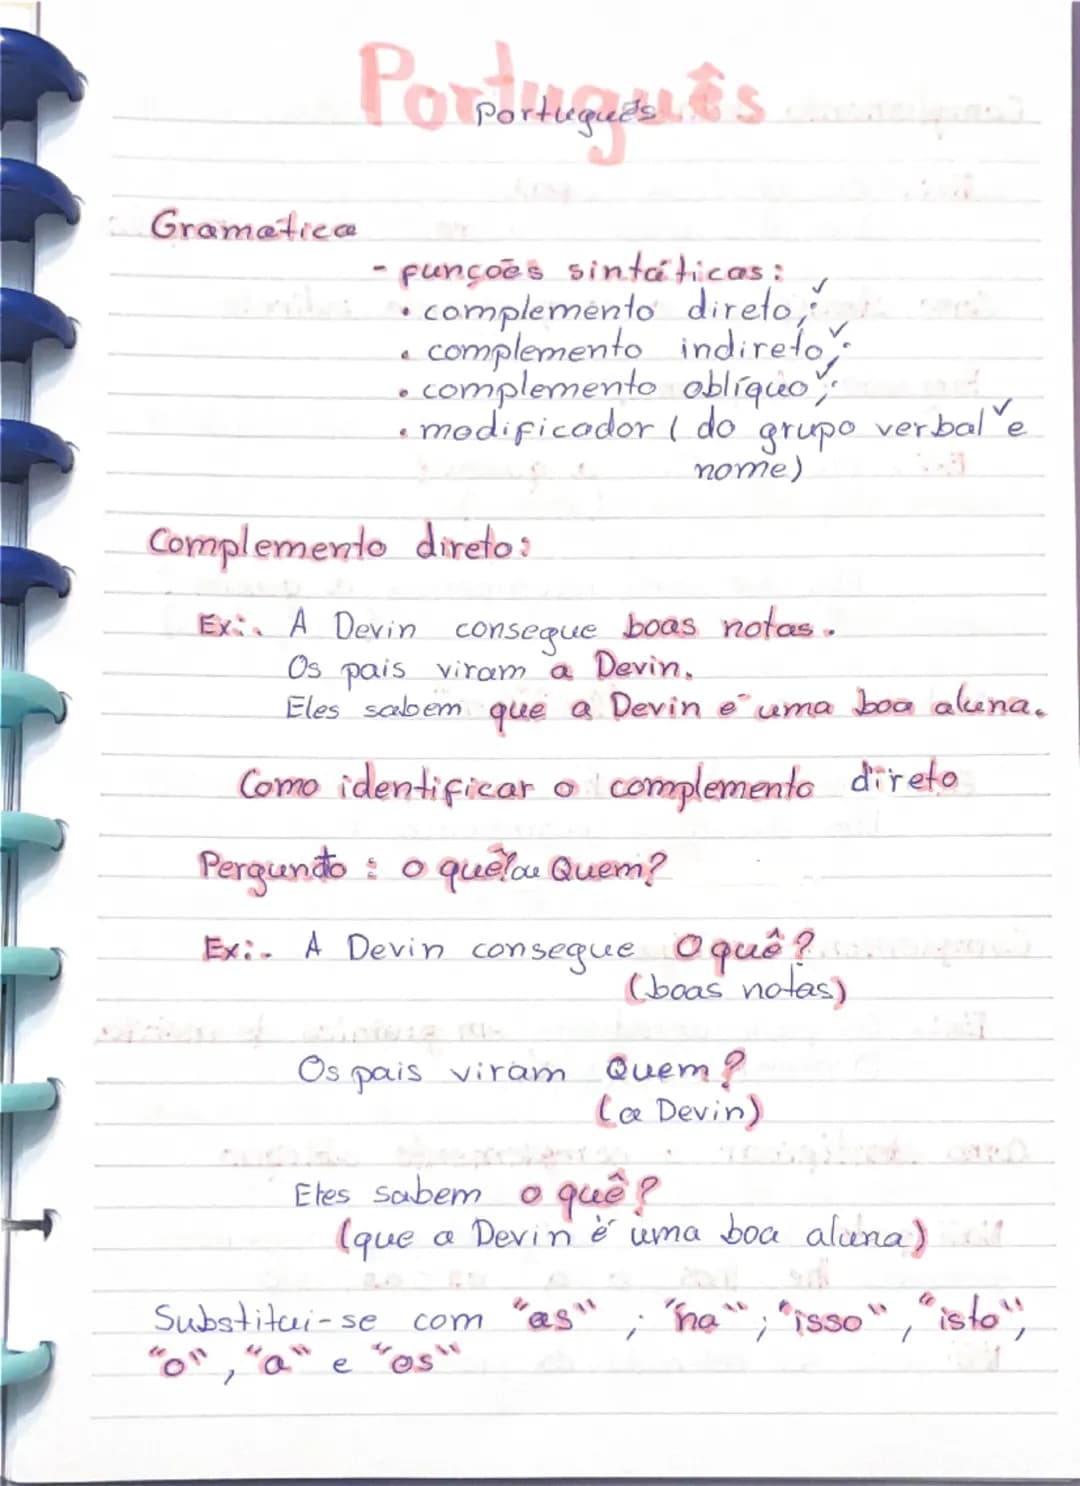 Português
Português
Gramatica
- funções sintáticas:
• complemento direto;
• complemento indireto;
• complemento oblíquo;
• modificador ( do grupo verbal e
nome)
Complemento direto:
Ex:. A Devin consegue boas notas.
Os pais viram a Devin.
Eles sabem que a Devin é uma boa aluna.
Como identificar o complemento direto
Pergunto : o quê? ou Quem?
Ex:. A Devin consegue O quê?
(boas notas)
Os pais viram Quem?
(a Devin)
Eles sabem o quê?
(que a Devin é uma boa aluna)
Substitui-se com "as" ; "na" ; "isso" , "isto",
"o" , "a" e "os"